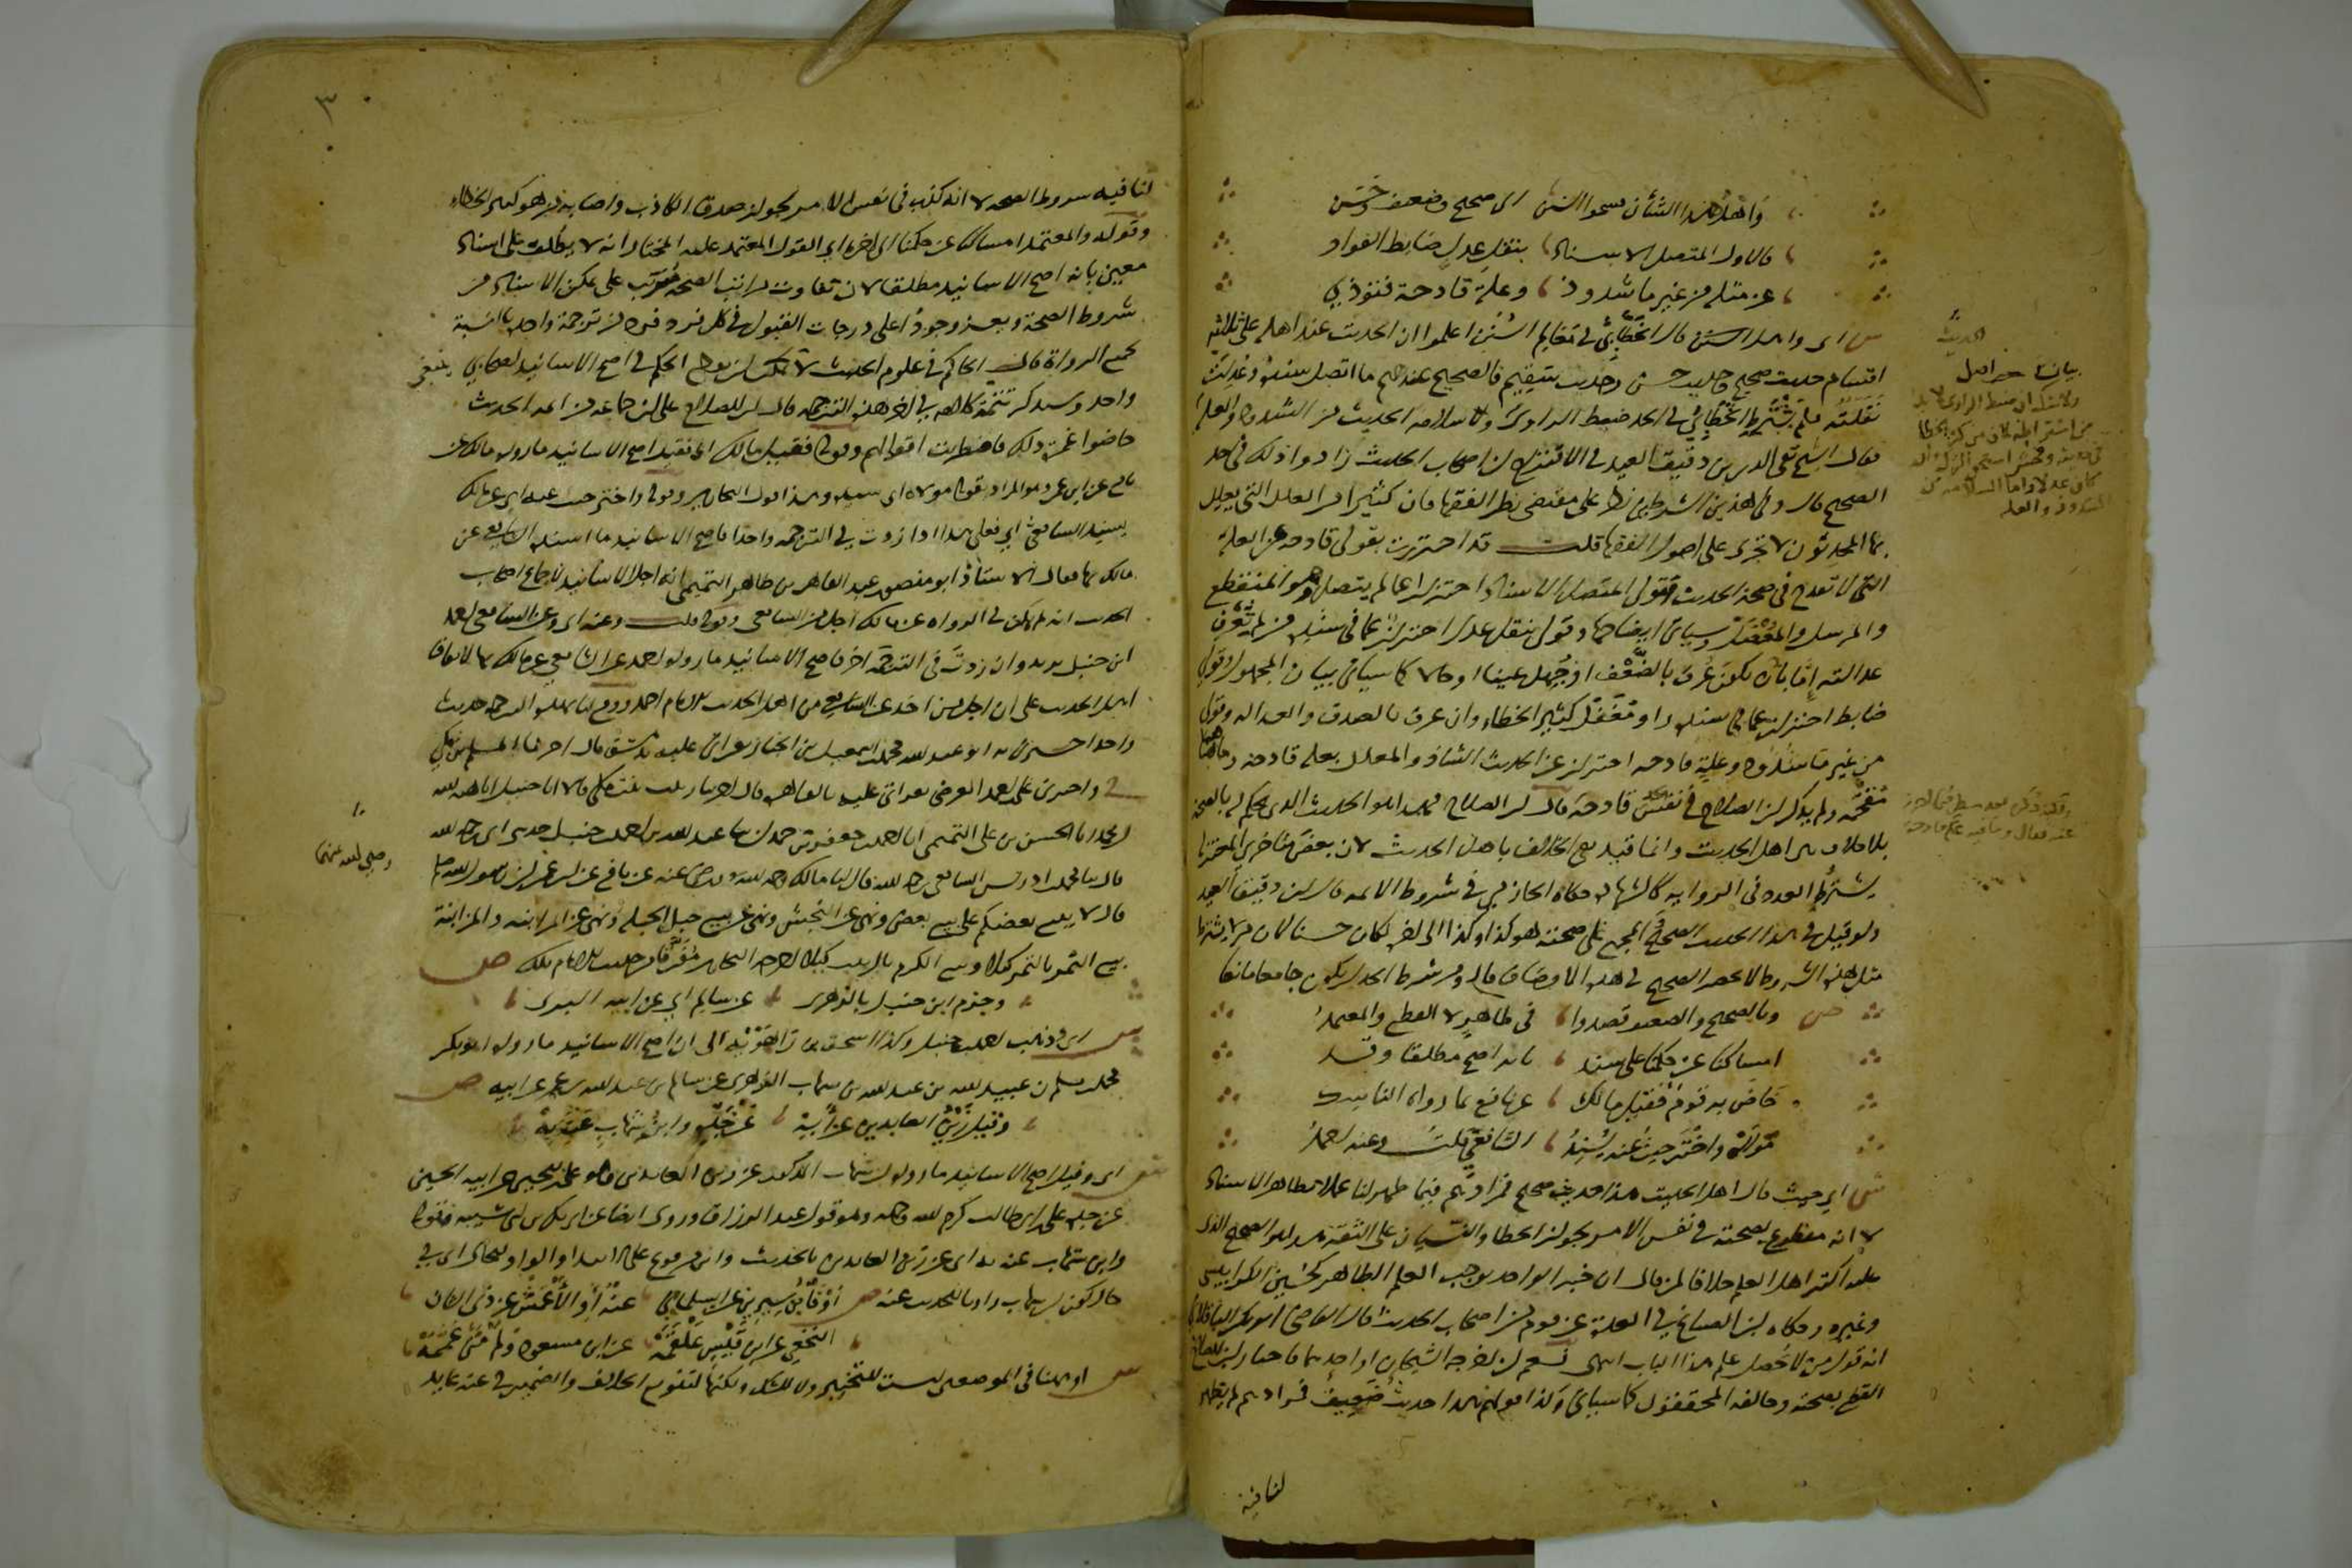 وأهل هذا الشأن قسموا السنن إلى صحيح وضعيف وحسن
فالأول المتصل الإسناد بنقل عدل ضابط الفؤاد
عن مثله من غير ما شذوذ وعلة قادحة فتوذي
ش أي وأهل الحديث قال الخطابي في معالم السنن اعلموا أن الحديث عند أهله على ثلاثة
أقسام حديث صحيح وحديث حسن وحديث سقيم فالصحيح عندهم ما اتصل سنده وعدلت
نقلته فلم يشترط الخطابي في الحد ضبط الراوي ولا سلامة الحديث من الشذوذ والعلة
فقال الشيخ تقي الدين بن دقيق العيد في الاقتراح إن أصحاب الحديث زادوا ذلك في حد
الصحيح قال وفي هذين الشرطين نظر على مقتضى نظر الفقهاء فإن كثيرا من العلل التي يعلل
بها المحدثون لا تجري على أصول الفقهاء قلت قد احترزت بقولي قادحة عن العلة
التي لا تقدح في صحة الحديث فقولي المتصل الإسناد احتراز عما لم يتصل وهو المنقطع
والمرسل والمعضل وسيأتي إيضاحها وقولي بنقل عدل احتراز عما في سنده من لم تعرف
عدالته إما بأن يكون عرف بالضعف أو جهل عينا أو حالا كما سيأتي بيان المجهول وقولي
ضابط احتراز عما في سنده راو مغفل كثير الخطاء وإن عرف بالصدق والعدالة وقولي
من غير ما شذوذ وعلة قادحة احتراز عن الحديث الشاذ والمعلل بعلة قادحة
ولم يذكر ابن الصلاح في نفس الحد قادحة قال ابن الصلاح فهذا هو الحديث الذي يحكم له بالصحة
بلا خلاف بين أهل الحديث وإنما قيد نفي الخلاف بأهل الحديث لأن بعض متأخري المعتزلة
يشترط العدد في الرواية كالشهادة حكاه الحازمي في شروط الأئمة قال ابن دقيق العيد
ولو قيل في هذا الحديث الصحيح المجمع على صحته هو كذا وكذا إلى آخره لكان حسنا لأن من لا يشترط
مثل هذه الشروط لا يحصر الصحيح في هذه الأوصاف قال ومن شرط الحد أن يكون جامعا مانعا
ص وبالصحيح والضعيف قصدوا في ظاهر لا القطع والمعتمد
إمساكنا عن حكمنا على سند بأنه أصح مطلقا وقد
خاض به قوم فقيل مالك عن نافع بما رواه الناسك
مولاه واختر حيث عنه يسند الشافعي قلت وعنه أحمد
ش أي حيث قال أهل الحديث هذا حديث صحيح فمرادهم فيما ظهر لنا عملا بظاهر الإسناد
لا أنه مقطوع بصحته في نفس الأمر لجواز الخطا والنسيان على الثقة هذا هو الصحيح الذي
عليه أكثر أهل العلم خلافا لمن قال إن خبر الواحد يوجب العلم الظاهر كحسين الكرابيسي
وغيره وحكاه ابن الصباغ في العدة عن قوم من أصحاب الحديث قال القاضي أبو بكر الباقلاني
إنه قول من لا يحصل علم هذا الباب انتهى نعم إن أخرجه الشيخان أو أحدهما فاختار ابن الصلاح
القطع بصحته وخالفه المحققون كما سيأتي وكذا قولهم هذا حديث ضعيف فمرادهم لم يظهر
لنا فيه
٣
لنا فيه شروط الصحة لا أنه كذب في نفس الأمر لجواز صدق الكاذب وإصابة من هو كثير الخطاء
وقوله والمعتمد إمساكنا عن حكمنا إلى آخره أي القول المعتمد عليه المختار أنه لا يطلق على إسناد
معين بأنه أصح الأسانيد مطلقا لأن تفاوت مراتب الصحة مترتب على تمكن الإسناد من
شروط الصحة ويعز وجود أعلى درجات القبول في كل فرد فرد من ترجمة واحدة بالنسبة
لجميع الرواة قال الحاكم في علوم الحديث لا يمكن أن يقطع الحكم في أصح الأسانيد لصحابي
واحد وسنذكر تتمة كلامه في آخر هذه الترجمة قال ابن الصلاح على أن جماعة من أئمة الحديث
خاضوا غمرة ذلك فاضطربت أقوالهم وقوله فقيل مالك أي فقيل أصح الأسانيد ما رواه مالك عن
نافع عن ابن عمر وهو المراد بقوله مولاه أي سيده وهذا قول البخاري وقوله واختر حيث عنه أي عن مالك
يسند الشافعي أي فعلى هذا إذا زدت في الترجمة واحدا فأصح الأسانيد ما أسنده الشافعي عن
مالك بها فقال الأستاذ أبو منصور عبد القاهر بن طاهر التميمي إنه أجل الأسانيد لإجماع أصحاب
الحديث أنه لم يكن في الرواة عن مالك أجل من الشافعي وقوله قلت وعنه أي وعن الشافعي أحمد
ابن حنبل يريد وإن زدت في الترجمة آخر فأصح الأسانيد ما رواه أحمد عن الشافعي عن مالك بها لاتفاق
أهل الحديث على أن أجل من أخذ عن الشافعي من أهل الحديث الإمام أحمد ووقع لنا بهذه الترجمة حديث
واحد أخبرني به أبو عبد الله محمد بن إسمعيل بن الخباز بقراءتي عليه بدمشق قال أخبرنا المسلم بن مكي
ح وأخبرني علي بن أحمد العرضي بقراءتي عليه بالقاهرة قال أخبرتنا زينب بنت مكي قالا أنا حنبل أنا هبة الله
أنا الحسن بن علي التميمي أنا أحمد بن جعفر بن حمدان ثنا عبد الله بن أحمد بن حنبل حدثني أبي رحمه الله
قال ثنا محمد بن إدريس الشافعي رحمه الله قال أنا مالك رحمه الله ورضي عنه عن نافع عن ابن عمر أن رسول الله صلعم
قال لا يبيع بعضكم على بيع بعض ونهى عن النجش ونهى عن بيع حبل الحبلة ونهى عن المزابنة والمزابنة
بيع الثمر بالتمر كيلا وبيع الكرم بالزبيب كيلا أخرجه البخاري مفرقا من حديث الإمام مالك ص
وجزم ابن حنبل بالزهري عن سالم أي عن أبيه البري
ش أي وذهب أحمد بن حنبل وكذا إسحق بن راهويه إلى أن أصح الأسانيد ما رواه أبو بكر
محمد بن مسلم بن عبيد الله بن عبد الله بن شهاب الزهري عن سالم بن عبد الله بن عمر عن أبيه ص
وقيل زين العابدين عن أبه عن جده وابن شهاب عنه به
ش أي وقيل أصح الأسانيد ما رواه ابن شهاب المذكور عن زين العابدين وهو علي بن الحسين عن أبيه الحسين
عن جده علي بن أبي طالب كرم الله وجهه وهو قول عبد الرزاق وروي أيضا عن أبي بكر بن أبي شيبة فقوله
وابن شهاب عنه به أي عن زين العابدين بالحديث وابن مرفوع على الابتداء والواو للحال أي في
حال كون ابن شهاب راويا للحديث عنه ص أو فابن سيرين عن السلماني عنه أو الأعمش عن ذي الشان
النخعي عن ابن قيس علقمه عن ابن مسعود ولم من عممه
ش أو هنا في الموضعين ليست للتخيير ولا للشك ولكنها لتنويع الخلاف والضمير في عنه عائد